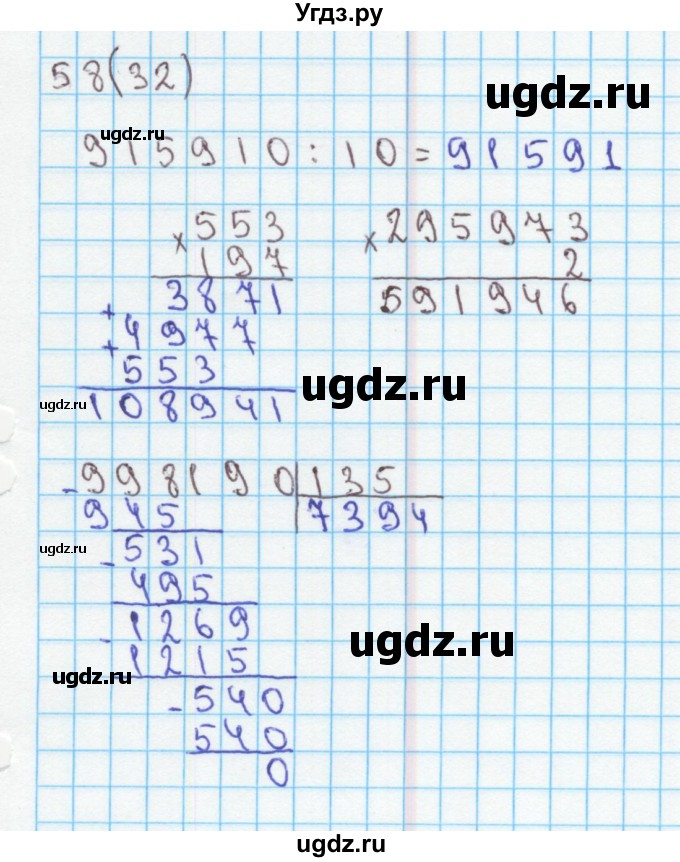 Угдз.ру
58(32)
ugdz.ru
ugdz.ru
915910 : 10 = 91591
×553
197
3871
+
4977
+
553
108941
×295973
2
591946
ugdz.ru
ugdz.ru
-998190 135
945 7394
-531
495
-1269
1215
-540
540
0
ugdz.ru
ugdz.ru
ugdz.ru
ugdz.ru